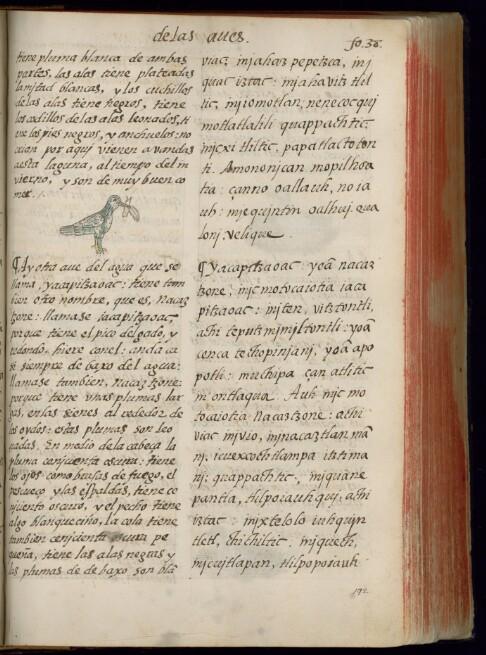 de las aues.
fo. 38.
tiene pluma blanca de ambas
partes, las alas tiene plateadas
la mjtad blancas, y los cuchillos
de las alas tiene negros, tiene
los codillos de las alas leonados, ti
ene los pies negros, y anchuelos: no
crian por aqui vienen a vandas
a esta laguna, al tiempo del in
vierno, y son de muy buen co
mer.
¶ Ay otra aue del agua que se
llama, yacapitzaoac: tiene tam
bien otro nombre, que es, nacaz
tzone: llamase iacapitzaoac,
porque tiene el pico delgado, y
redondo. hiere con el: anda ca
si siempre de baxo del agua:
llamase tambien, nacaztzone:
porque tiene vnas plumas lar
gas, en las sienes al rededor de
los oydos: estas plumas son leo
nadas. En medio de la cabeça la
pluma cenjcienta oscura: tiene
los ojos como brasas de fuego, el
pescueço y las espaldas, tiene ce
njciento oscuro, y el pecho tiene
algo blanquecino, la cola tiene
tambien cenjcienta oscura pe
queña, tiene las alas negras y
las plumas de de baxo son blã
viac, injahaz pepetzca, inj
quac iztac: injahavitz tlil
tic, injomotlan, nenecoc qui
motlatlalili quappachtic:
injcxi tliltic, papatlactoton
ti. Amo nonjcan mopilhoa
tia: çanno oallauh, no ia
uh: injequintin oalhuj. qua
lonj: velique.
¶ Yacapitzaoac: yoã nacaz
tzone, injc motocaiotia iaca
pitzaoac: injten, vitztontli,
achi teputzmjmjltontli: yoã
cenca techopinjanj, yoã apo
potli: muchipa çan atlitic
in ontlaqua. Auh injc mo
tocaiotia nacaztzone: achi
viac injvio, injnacaztlan mã
nj, icuexcochtlampa itztima
nj: quappachtic, injquane
pantla, tlilpoiauhquj: achi
iztac: injxtelolo iuhquin
tletl, chichiltic. injquech,
injcujtlapan, tlilpopoiauh